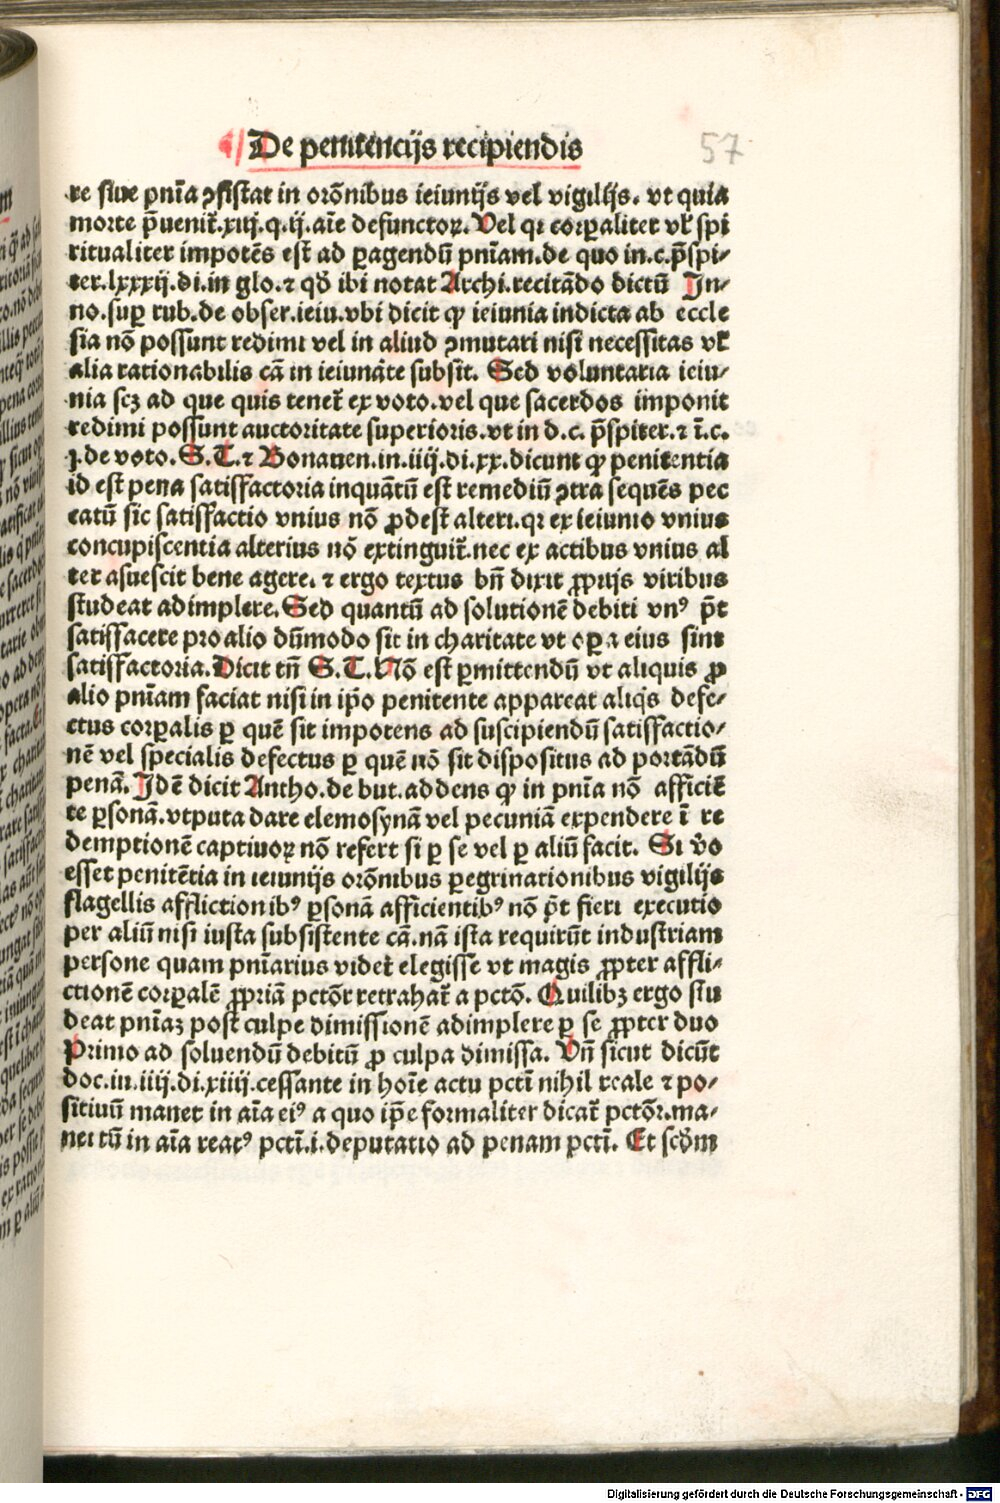 De penitencijs recipiendis
57
re siue pnīa ꝯsistat in orōnibus ieiunijs vel vigilijs. vt quia
morte p̄uenit᷑.xiij.q.ij.aīe defunctoꝝ. Vel qꝛ corꝑaliter vł spi
ritualiter impotēs est ad ꝑagendū pnīam.de quo in.c.p̄spi⸗
ter.lxxxij.di.in glo.⁊ qđ ibi notat Archi.recitādo dictū In⸗
no.suꝑ rub.de obser.ieiu.vbi dicit ꝙ ieiunia indicta ab eccle
sia nō possunt redimi vel in aliud ꝯmutari nisi necessitas vł
alia rationabilis cā in ieiunāte subsit. Sed voluntaria ieiu⸗
nia scꝫ ad que quis tenet᷑ ex voto.vel que sacerdos imponit
redimi possunt auctoritate superioris.vt in d.c. p̄spiter.⁊ ī.c.
j.de voto.S.T.⁊ Bonauen.in.iiij.di.xx.dicunt ꝙ penitentia
id est pena satisfactoria inquātū est remediū ꝯtra sequēs pec
catū sic satisfactio vnius nō ꝓdest alteri.qꝛ ex ieiunio vnius
concupiscentia alterius nō extinguit᷑.nec ex actibus vnius al
ter asuescit bene agere. ⁊ ergo textus bn̄ dixit ꝓprijs viribus
studeat adimplere. Sed quantū ad solutionē debiti vnꝰ p̄t
satisfacere pro alio dūmodo sit in charitate vt oꝑa eius sint
satisfactoria. Dicit tn̄ S.T. Nō est ꝑmittendū vt aliquis ꝓ
alio pnīam faciat nisi in ip̄o penitente appareat aliq̇s defe⸗
ctus corꝑalis ꝑ quē sit impotens ad suscipiendū satisfactio⸗
nē vel specialis defectus ꝑ quē nō sit dispositus ad portādū
penā. Idē dicit Antho.de but.addens ꝙ in pnīa nō afficiē
te ꝑsonā.vtputa dare elemosynā vel pecuniā expendere ī re
demptionē captiuoꝝ nō refert si ꝑ se vel ꝑ aliū facit. Si v̊o
esset penitētia in ieiunijs orōnibus ꝑegrinationibus vigilijs
flagellis afflictionibꝰ ꝑsonā afficientibꝰ nō p̄t fieri executio
per aliū nisi iusta subsistente cā.nā ista requirūt industriam
persone quam pnīarius videt᷑ elegisse vt magis ꝓpter affli⸗
ctionē corꝑalē ꝓpriā pctōr retrahat᷑ a pctō. Quilibꝫ ergo stu
deat pnīaꝫ post culpe dimissionē adimplere ꝑ se ꝓpter duo
Primo ad soluendū debitū ꝓ culpa dimissa. Vn̄ sicut dicūt
doc.in.iiij.di.xiiij.cessante in hoīe actu pctī nihil reale ⁊ po⸗
sitiuū manet in aīa eiꝰ a quo ip̄e formaliter dicat᷑ pctōr.ma⸗
net tn̄ in aīa reatꝰ pctī.i.deputatio ad penam pctī. Et scđm
Digitalisierung gefördert durch die Deutsche Forschungsgemeinschaft - DFG